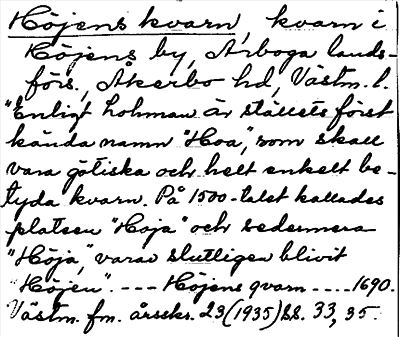 Höjens kvarn, kvarn i
Höjens by, Arboga lands-
förs., Åkerbo hd, Västm. l.
"Enligt Lohman är ställets först
kända namn "Hoa", som skall
vara götiska och helt enkelt be-
tyda kvarn. På 1500-talet kallades
platsen "Höja" och sedermera
"Höja", varav slutligen blivit
"Höjen". --- Höjens qvarn ---- 1690.
Västm. fm. årsskr. 23 (1935) ss. 33, 35.